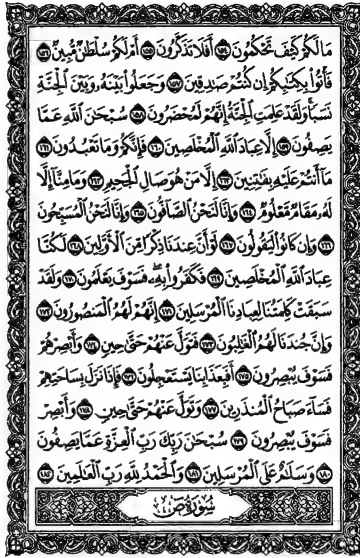 مَا لَكُمْ كَيْفَ تَحْكُمُونَ ١٥٤ أَفَلَا تَذَكَّرُونَ ١٥٥ أَمْ لَكُمْ سُلْطَانٌ مُّبِينٌ ١٥٦
فَأْتُوا بِكِتَابِكُمْ إِن كُنتُمْ صَادِقِينَ ١٥٧ وَجَعَلُوا بَيْنَهُ وَبَيْنَ الْجِنَّةِ
نَسَبًا وَلَقَدْ عَلِمَتِ الْجِنَّةُ إِنَّهُمْ لَمُحْضَرُونَ ١٥٨ سُبْحَانَ اللَّهِ عَمَّا
يَصِفُونَ ١٥٩ إِلَّا عِبَادَ اللَّهِ الْمُخْلَصِينَ ١٦٠ فَإِنَّكُمْ وَمَا تَعْبُدُونَ ١٦١
مَا أَنتُمْ عَلَيْهِ بِفَاتِنِينَ ١٦٢ إِلَّا مَنْ هُوَ صَالِ الْجَحِيمِ ١٦٣ وَمَا مِنَّا إِلَّا
لَهُ مَقَامٌ مَّعْلُومٌ ١٦٤ وَإِنَّا لَنَحْنُ الصَّافُّونَ ١٦٥ وَإِنَّا لَنَحْنُ الْمُسَبِّحُونَ
١٦٦ وَإِن كَانُوا لَيَقُولُونَ ١٦٧ لَوْ أَنَّ عِندَنَا ذِكْرًا مِّنَ الْأَوَّلِينَ ١٦٨ لَكُنَّا
عِبَادَ اللَّهِ الْمُخْلَصِينَ ١٦٩ فَكَفَرُوا بِهِ فَسَوْفَ يَعْلَمُونَ ١٧٠ وَلَقَدْ
سَبَقَتْ كَلِمَتُنَا لِعِبَادِنَا الْمُرْسَلِينَ ١٧١ إِنَّهُمْ لَهُمُ الْمَنصُورُونَ ١٧٢
وَإِنَّ جُندَنَا لَهُمُ الْغَالِبُونَ ١٧٣ فَتَوَلَّ عَنْهُمْ حَتَّى حِينٍ ١٧٤ وَأَبْصِرْهُمْ
فَسَوْفَ يُبْصِرُونَ ١٧٥ أَفَبِعَذَابِنَا يَسْتَعْجِلُونَ ١٧٦ فَإِذَا نَزَلَ بِسَاحَتِهِمْ
فَسَاءَ صَبَاحُ الْمُنذَرِينَ ١٧٧ وَتَوَلَّ عَنْهُمْ حَتَّى حِينٍ ١٧٨ وَأَبْصِرْ
فَسَوْفَ يُبْصِرُونَ ١٧٩ سُبْحَانَ رَبِّكَ رَبِّ الْعِزَّةِ عَمَّا يَصِفُونَ
١٨٠ وَسَلَامٌ عَلَى الْمُرْسَلِينَ ١٨١ وَالْحَمْدُ لِلَّهِ رَبِّ الْعَالَمِينَ ١٨٢
سُورَةُ ص